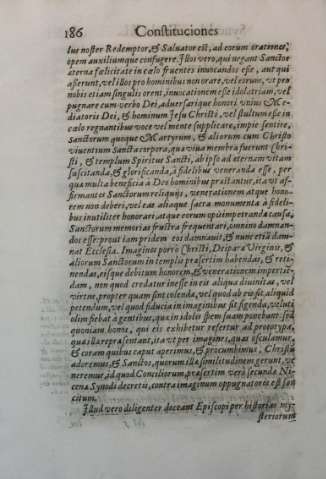 186 Constituciones
lus noster Redemptor, & Saluator est, ad eorum orationes,
opem auxiliumque confugere. Illos vero, qui negant Sanctos
aterna fælicitate in cælo fruentes inuocandos esse, aut qui
asserunt, vel illos pro hominibus non orare, vel eorum, vt pro
nobis etiam singulis orent, inuocationem esse idolatriam, vel
pugnare cum verbo Dei, aduersarique honori vnius Me-
diatoris Dei, & hominum Iesu Christi, vel stultum esse in
cælo regnantibus voce vel mente supplicare, impie sentire,
Sanctorum quoque Martyrum, & aliorum cum Christo
viuentium Sancta corpora, qua viua membra fuerunt Chri-
sti, & templum Spiritus Sancti, ab ipso ad eternam vitam
suscitanda, & glorificanda, à fidelibus veneranda esse, per
qua multa beneficia a Deo hominibus præstantur, ita vt af-
firmantes Sanctorum reliquijs, venerationem atque hono-
rem non deberi, vel eas aliaque sacra monumenta à fideli-
bus inutiliter honorari, atque eorum opis impetranda causa,
Sanctorum memorias frustra frequentari, omnino damnan-
dos esse: prout iam pridem eos damnauit, & nunc etiā dam-
nat Ecclesia. Imagines porro Christi, Deipara Virginis, &
aliorum Sanctorum in templis præsertim habendas, & reti-
nendas, eisque debitum honorem, & venerationem impertiē-
dam, non quod credatur inesse in eis aliqua diuinitas, vel
virtus, propter quam sint colenda, vel quod ab eis sit aliquid
petendum, vel quod fiducia in imaginibus sit figenda, veluti
olim fiebat à gentibus, qua in idolis spem suam ponebant: sed
quoniam honos, qui eis exhibetur refertur ad prototypa,
qua illa repræsentant, ita vt per imagines, quas osculamur,
& coram quibus caput aperimus, & procumbimus, Christū
adoremus, & Sanctos, quorum illa similitudinem gerunt, ve
neremur, id quod Conciliorum, præsertim vero secunda Ni-
cena Synodi decretis, contra imaginum oppugnatores est san
citum.
Illud vero diligenter doceant Episcopi per historias my-
steriorum